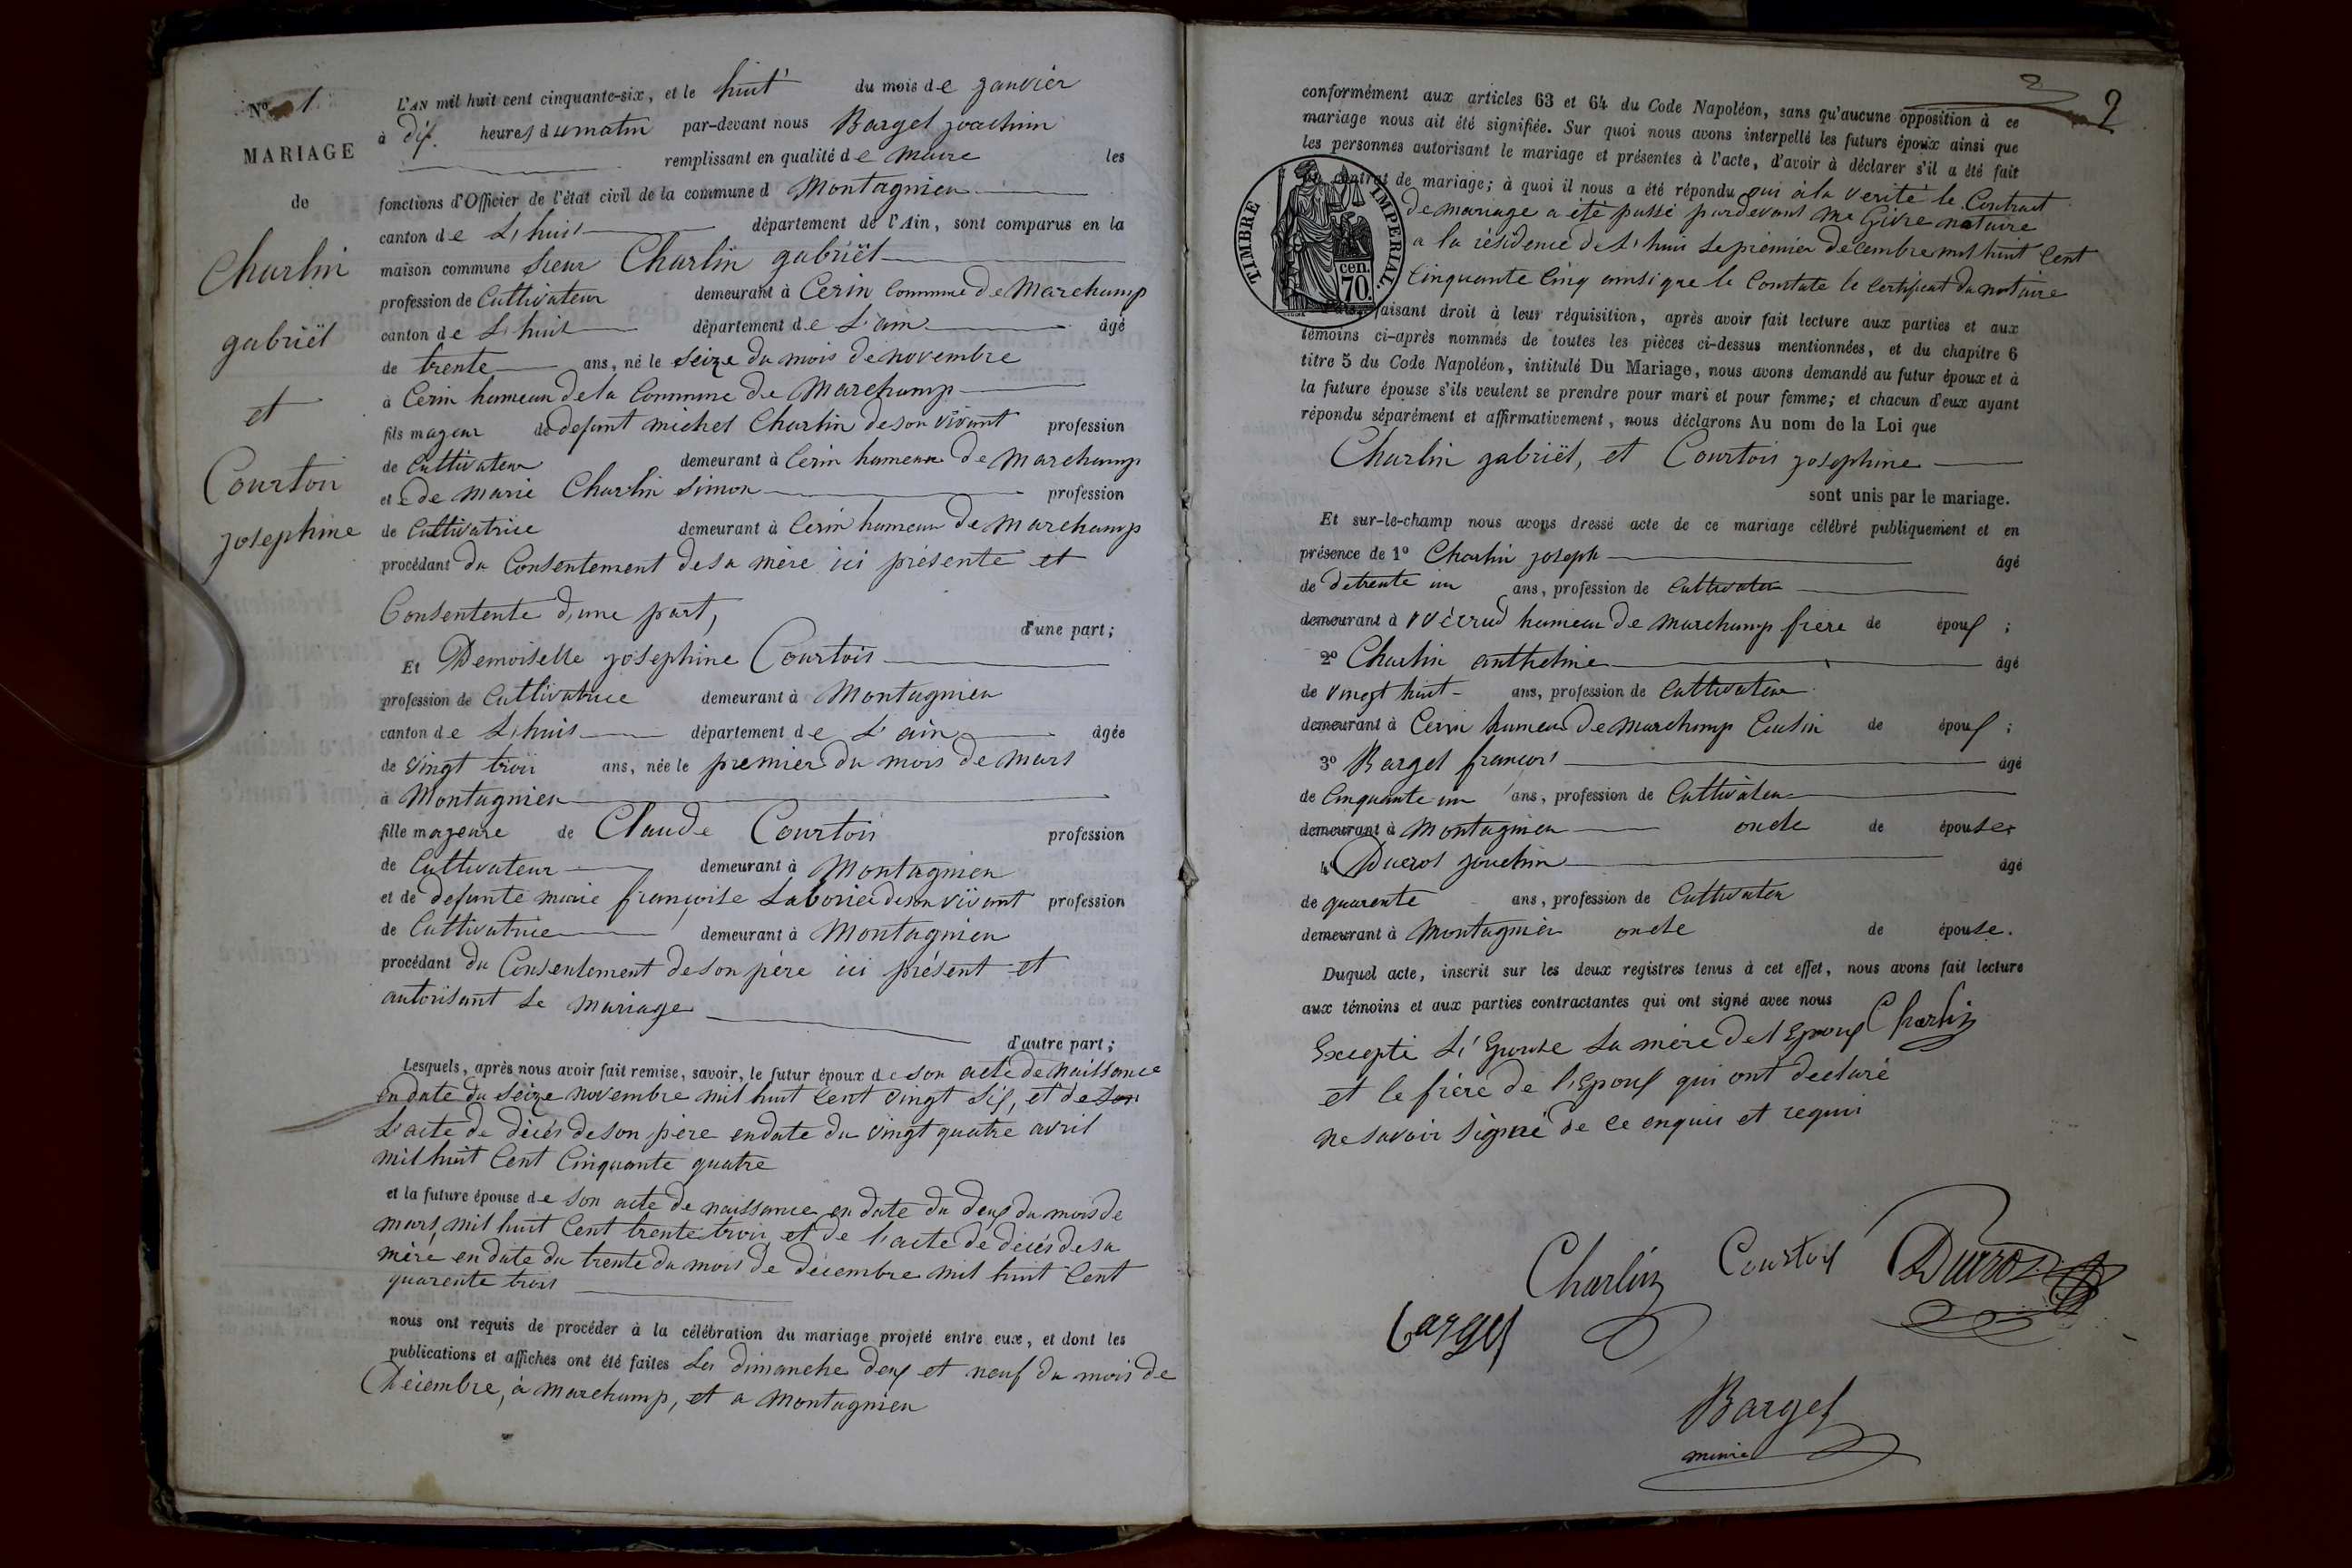 No 1.
MARIAGE
de
Charlin
gabriël
et
Courtois
josephine
L'AN mil huit cent cinquante-six, et le huit du mois de janvier
à dix heures du matin par-devant nous Barget joachim
remplissant en qualité de maire les
fonctions d'Officier de l'état civil de la commune d Montagnieu
canton de L'huis département de l'Ain, sont comparus en la
maison commune sieur Charlin gabriël
profession de Cultivateur demeurant à Cerin Commune de Marchamp
canton de L'huis département de L'ain âgé
de trente ans, né le seize du mois de novembre
à Cerin hameau de la Commune de Marchamp
fils majeur de defunt michel Charlin de son vivant profession
de Cultivateur demeurant à Cerin hameau de Marchamp
et de marie Charlin Simon profession
de Cultivatrice demeurant à Cerin hameau de Marchamp
procédant du Consentement de sa mère ici présente et
Consentente d'une part,
d'une part;
Et Demoiselle josephine Courtois
profession de Cultivatrice demeurant à Montagnieu
canton de L'huis département de L'ain âgée
de vingt trois ans, née le premier du mois de mars
à Montagnieu
fille majeure de Claude Courtois profession
de Cultivateur demeurant à Montagnieu
et de defunte marie françoise Laborier de son vivant profession
de Cultivatrice demeurant à Montagnieu
procédant du Consentement de son père ici présent et
autorisant le mariage
d'autre part;
Lesquels, après nous avoir fait remise, savoir, le futur époux de son acte de naissance
en date du seize novembre mil huit Cent vingt six, et de son
L'acte de décés de son père en date du vingt quatre avril
mil huit Cent Cinquante quatre
et la future épouse de son acte de naissance en date du deux du mois de
mars, mil huit Cent trente trois, et de l'acte de décés de sa
mère en date du trente du mois de décembre mil huit Cent
quarente trois
nous ont requis de procéder à la célébration du mariage projeté entre eux, et dont les
publications et affiches ont été faites Les dimanche deux et neuf du mois de
Décembre, à Marchamp, et a Montagnieu
2
conformément aux articles 63 et 64 du Code Napoléon, sans qu'aucune opposition à ce
mariage nous ait été signifiée. Sur quoi nous avons interpellé les futurs époux ainsi que
les personnes autorisant le mariage et présentes à l'acte, d'avoir à déclarer s'il a été fait
contrat de mariage; à quoi il nous a été répondu oui à la verité le Contract
TIMBRE IMPERIAL
cen. 70.
de mariage a été passé pardevant Me Givre notaire
a la résidence de L'huis le premier decembre mil huit Cent
Cinquante Cinq ainsi que le Constate le Certificat du notaire
faisant droit à leur réquisition, après avoir fait lecture aux parties et aux
témoins ci-après nommés de toutes les pièces ci-dessus mentionnées, et du chapitre 6
titre 5 du Code Napoléon, intitulé Du Mariage, nous avons demandé au futur époux et à
la future épouse s'ils veulent se prendre pour mari et pour femme; et chacun d'eux ayant
répondu séparément et affirmativement, nous déclarons Au nom de la Loi que
Charlin gabriël, et Courtois josephine
sont unis par le mariage.
Et sur-le-champ nous avons dressé acte de ce mariage célébré publiquement et en
présence de 1º Charlin joseph âgé
de de trente un ans, profession de Cultivateur
demeurant à hameau de Marchamp frère de époux ;
2º Charlin anthelme âgé
de vingt huit ans, profession de Cultivateur
demeurant à Cerin hameau de Marchamp Cousin de époux ;
3º Barget francois âgé
de Cinquante un ans, profession de Cultivateur
demeurant à Montagnieu oncle de épouse.
4 Ducros joachim âgé
de quarente ans, profession de Cultivateur
demeurant à Montagnieu oncle de épouse.
Duquel acte, inscrit sur les deux registres tenus à cet effet, nous avons fait lecture
aux témoins et aux parties contractantes qui ont signé avec nous
Excepté L'Epouse La mère de l'Epoux Charlin
et le frère de l'Epoux qui ont declaré
ne savoir signé de ce enquis et requis
Charlin Courtois Ducros
barget
Barget
maire